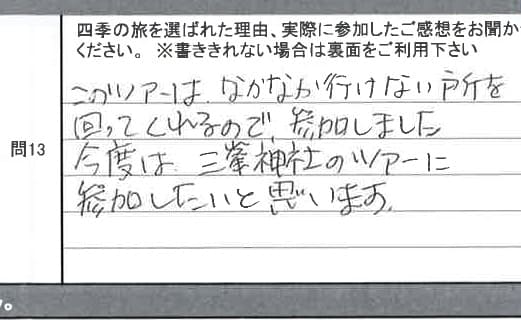 四季の旅を選ばれた理由、実際に参加したご感想をお聞か
ください。 ※書ききれない場合は裏面をご利用下さい
問13
このツアーは、なかなか行けない所を
回ってくれるので、参加しました
今度は、三峯神社のツアーに
参加したいと思います。